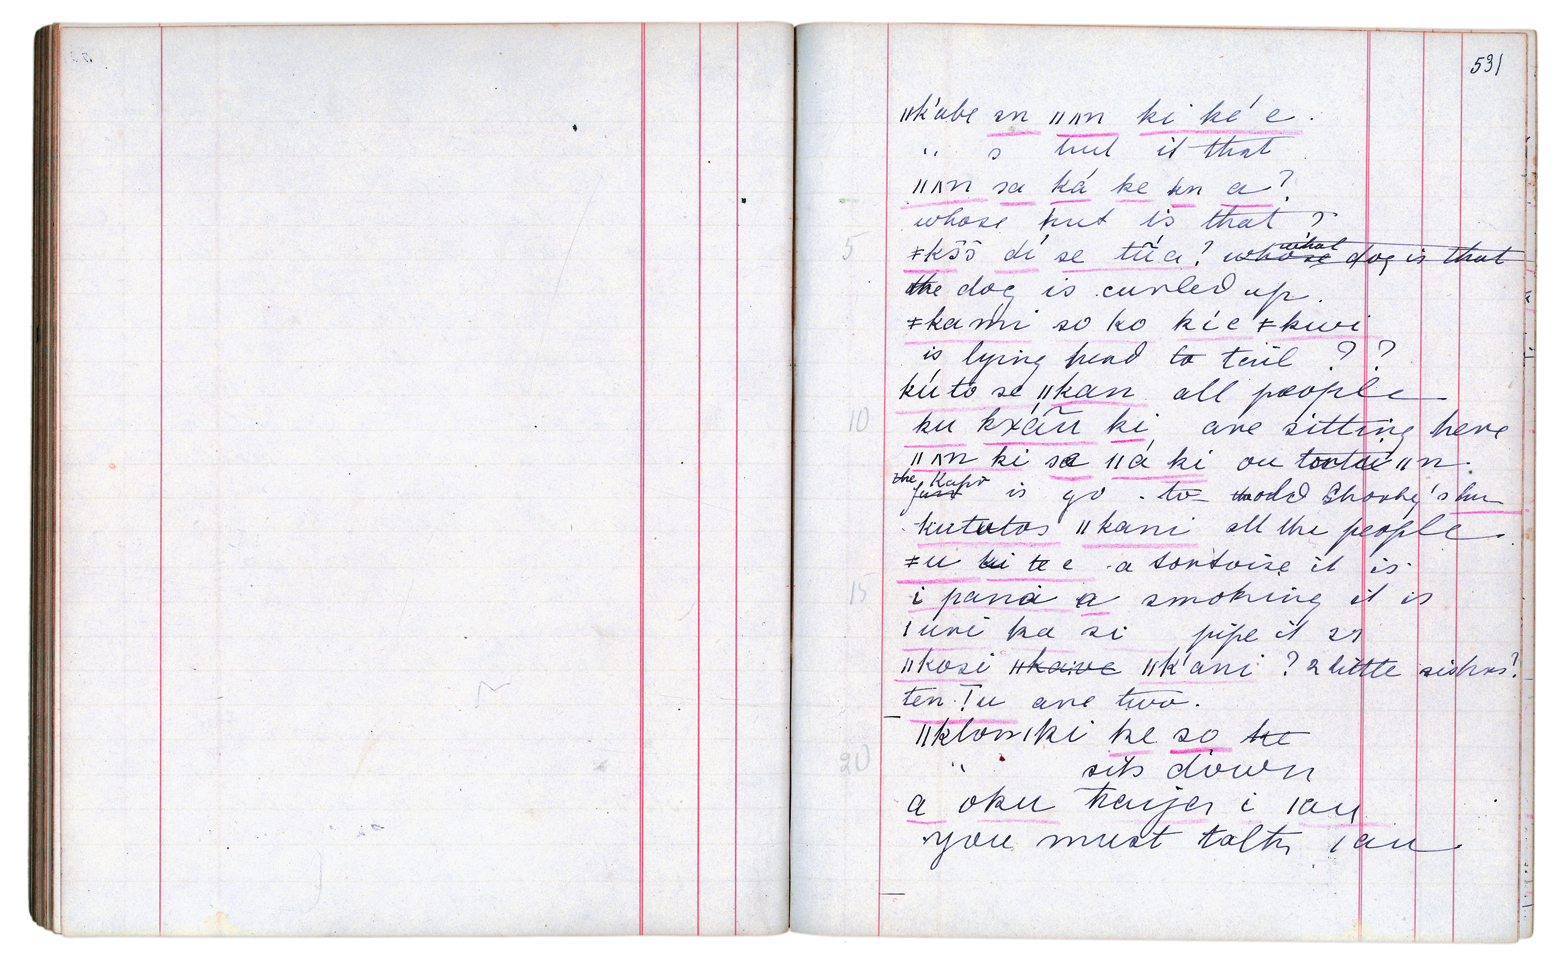 531
ǁk'abe sn ǁʌn ki ké e.
" s hut it that
ǁʌn sa ká ke kn a?
whose hut is that?
5
ǂkɔ̃ɔ̃ di se tũa? whose what dog is that
the dog is curled up.
ǂkami so ko kie ǂkwi
is lying head to tail ??
kúto se ǁkan all people
10
ku kxáũ ki are sitting here
ǁʌn ki sa ǁá ki ou ǁn.
the is go to Shorty's hu
kututos ǁkani all the people.
ǂu ki te e a tortoise it is
15
i paná a smoking it is
ǀuri ka si pipe it is
ǁkosi ǁkave ǁk'ani ? 2 little sisters?
ten !u are two.
ǁkloniki ke so ke
20
" sits down
a oku i ǀau
you must talk ǀau